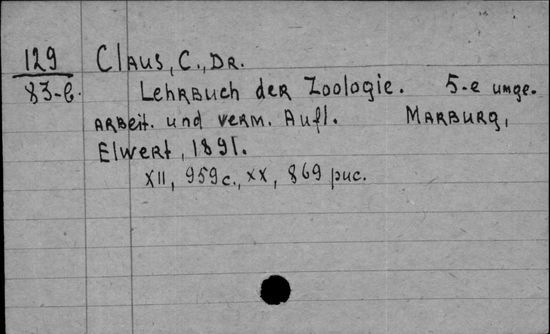 129 Claus, C., Dr.
83-b. Lehrbuch der Zoologie. 5-e umge-
arbeit. und verm. Aufl. Marburg,
Elwert, 1891.
XII, 959c., XX, 869 рис.